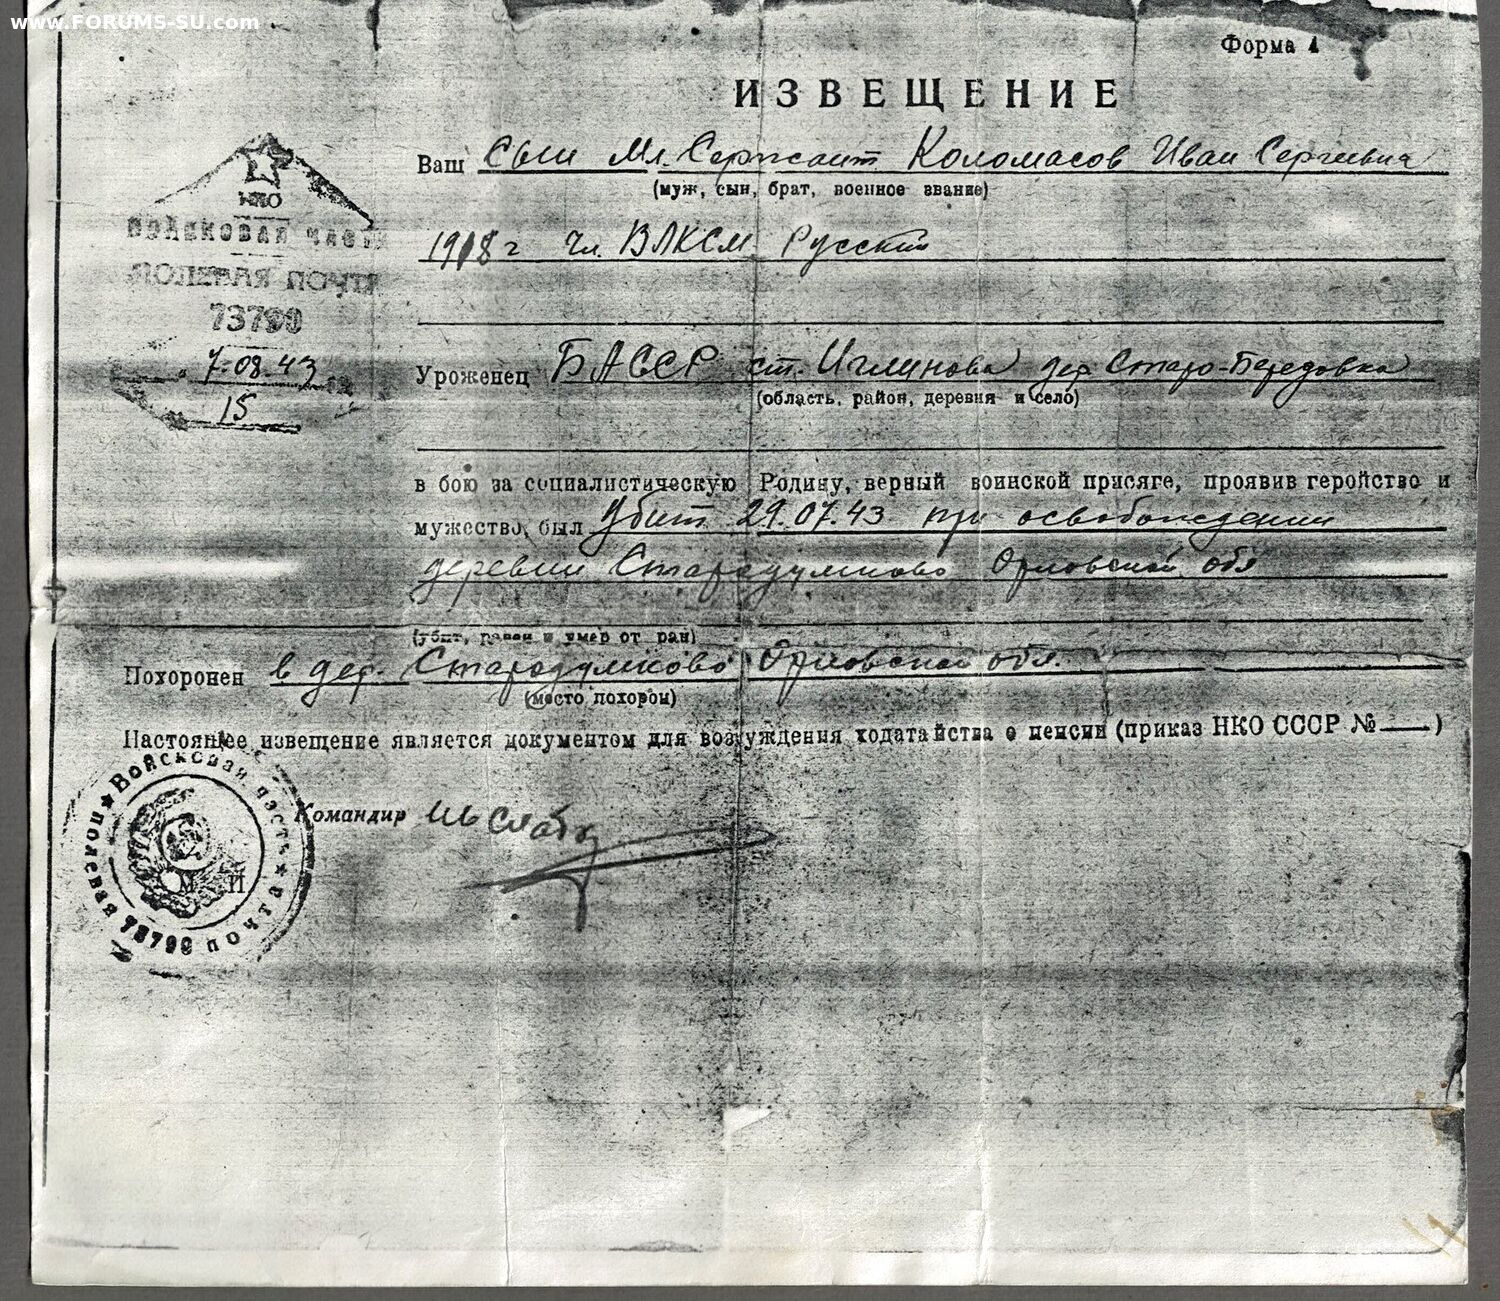 www.FORUMS-SU.com
Форма 1
ИЗВЕЩЕНИЕ
Ваш сын Мл. Сержант Коломасов Иван Сергеевич
(муж, сын, брат, военное звание)
1918 г чл. ВЛКСМ Русский
НКО
ВОЙСКОВАЯ ЧАСТЬ
ПОЛЕВАЯ ПОЧТА
73790
7.08.43
15
Уроженец БАССР ст. Иглинова дер. Старо-Бередовка
(область, район, деревня и село)
в бою за социалистическую Родину, верный воинской присяге, проявив геройство и
мужество, был убит 29.07.43 при освобождении
деревни Стародумково Орловской обл
(убит, ранен и умер от ран)
Похоронен в дер. Стародумково Орловской обл.
(место похорон)
Настоящее извещение является документом для возбуждения ходатайства о пенсии (приказ НКО СССР № )
Войсковая часть ★ полевая почта 73790
М П
Командир